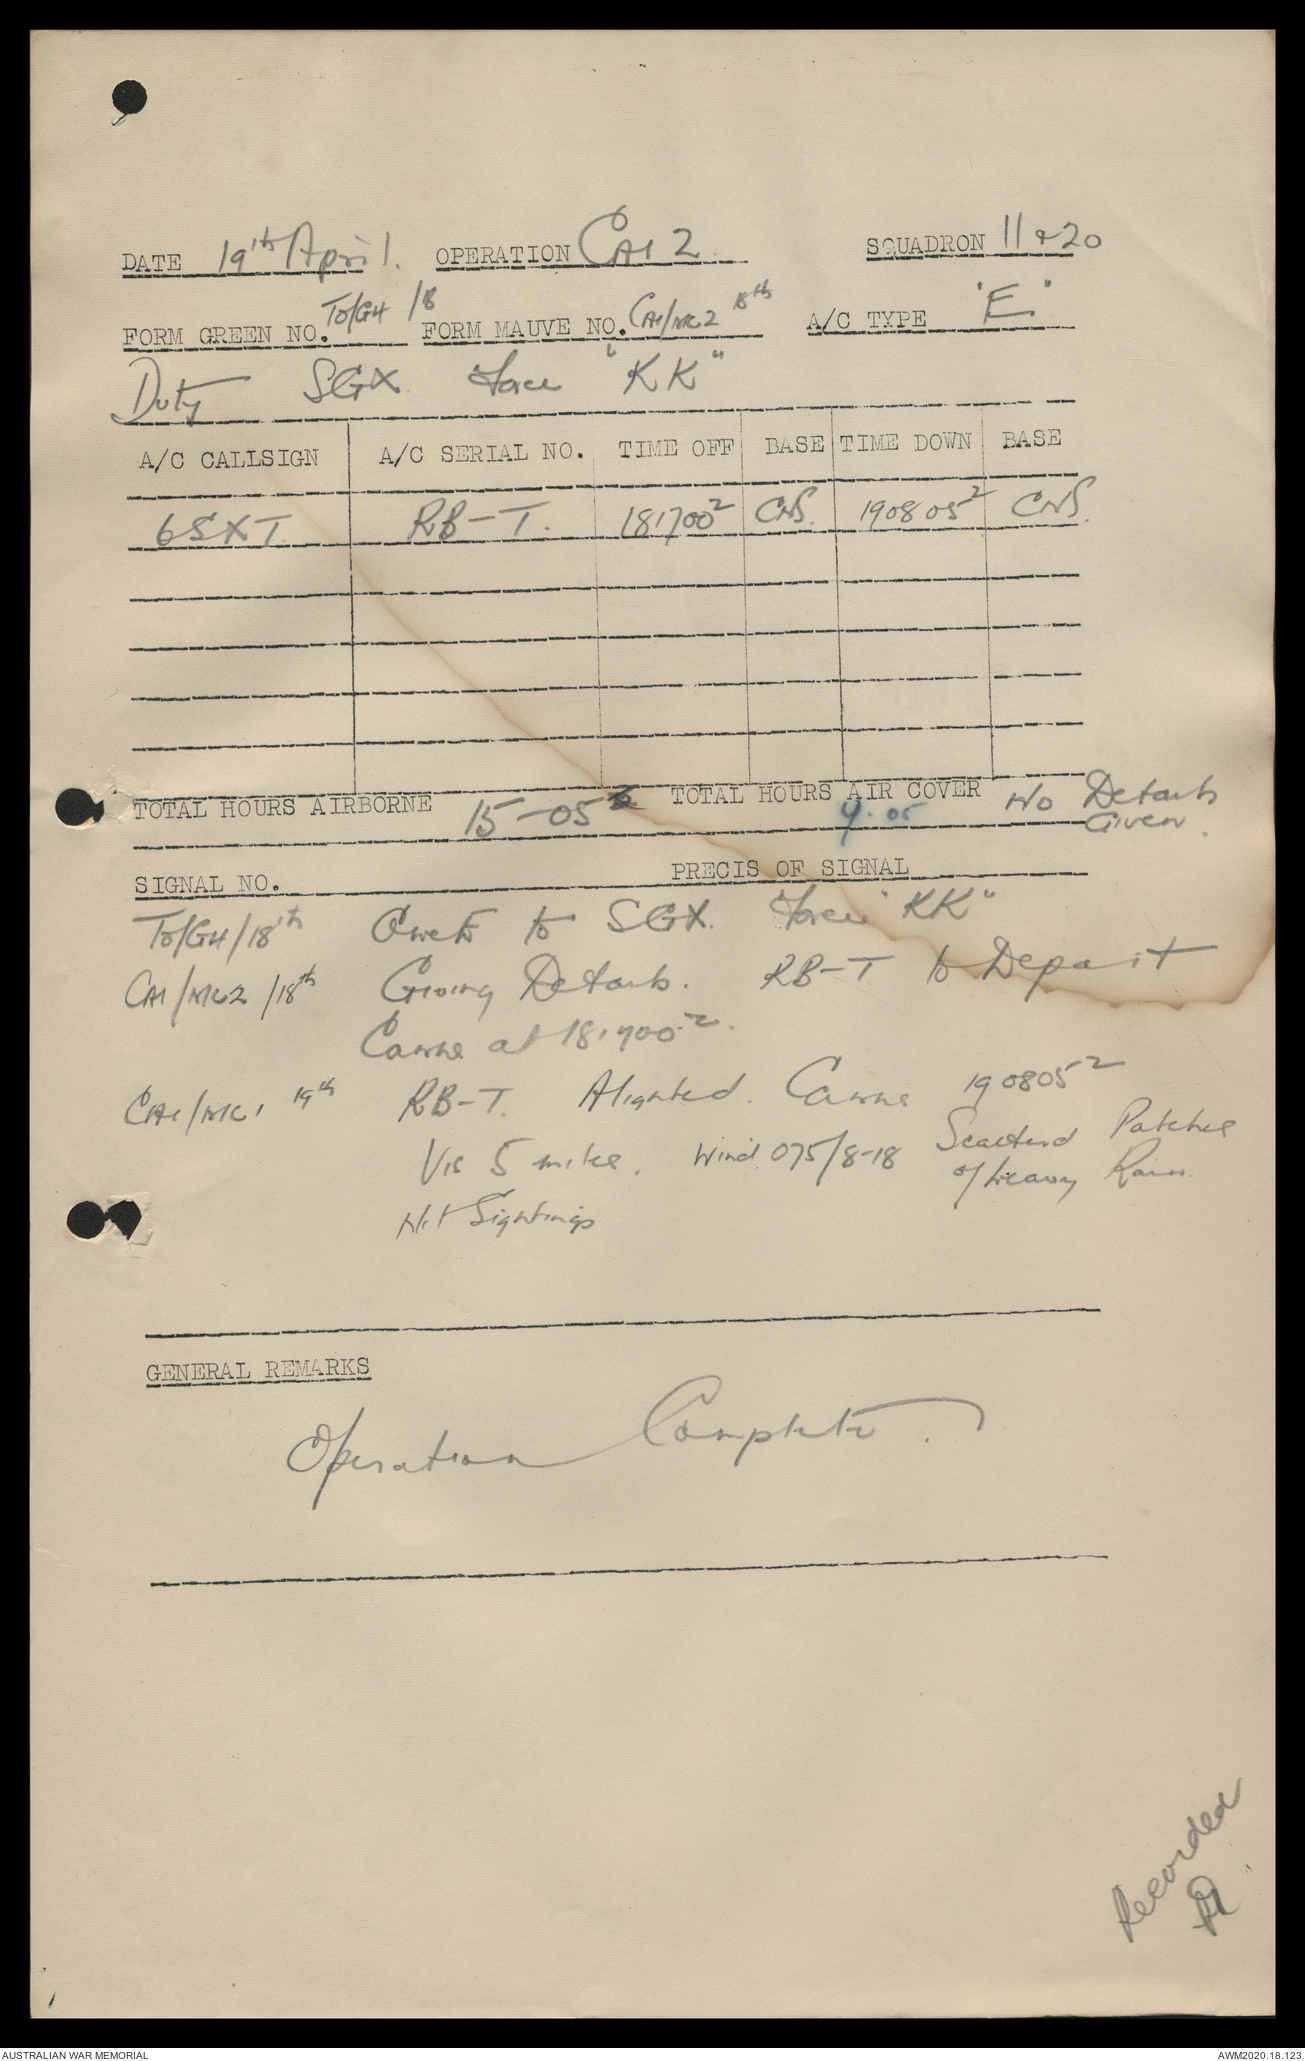 DATE 19th April. OPERATION CA1 2. SQUADRON 11 & 20
FORM GREEN NO. TO/G4 /18 FORM MAUVE NO. CA1/MC2 18th A/C TYPE 'E'
Duty SGX Force "KK"
A/C CALLSIGN A/C SERIAL NO. TIME OFF BASE TIME DOWN BASE
6SXT RB-T. 181700Z CNS. 190805Z CNS.
TOTAL HOURS AIRBORNE 15-05 TOTAL HOURS AIR COVER 9.05 No Details
Given.
SIGNAL NO. PRECIS OF SIGNAL
TO/G4/18th to SGX. Force "KK"
CA1/MC2 /18th Giving Details. RB-T to Depart
Cairns at 181700Z.
CA1/MC1 19th RB-T. Alighted. Cairns 190805Z
Vis 5 miles. Wind 075/8-18 Scattered Patches
of heavy Rain.
Nil Sightings
GENERAL REMARKS
Operation Complete.
Recorded
AUSTRALIAN WAR MEMORIAL AWM2020.18.123